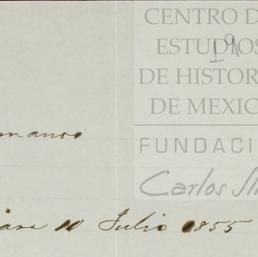 CENTRO D
ESTUDIOS
19
DE HISTOR
DE MEXIC
manos
FUNDACI
Carlos Sli
10 Julio 1855